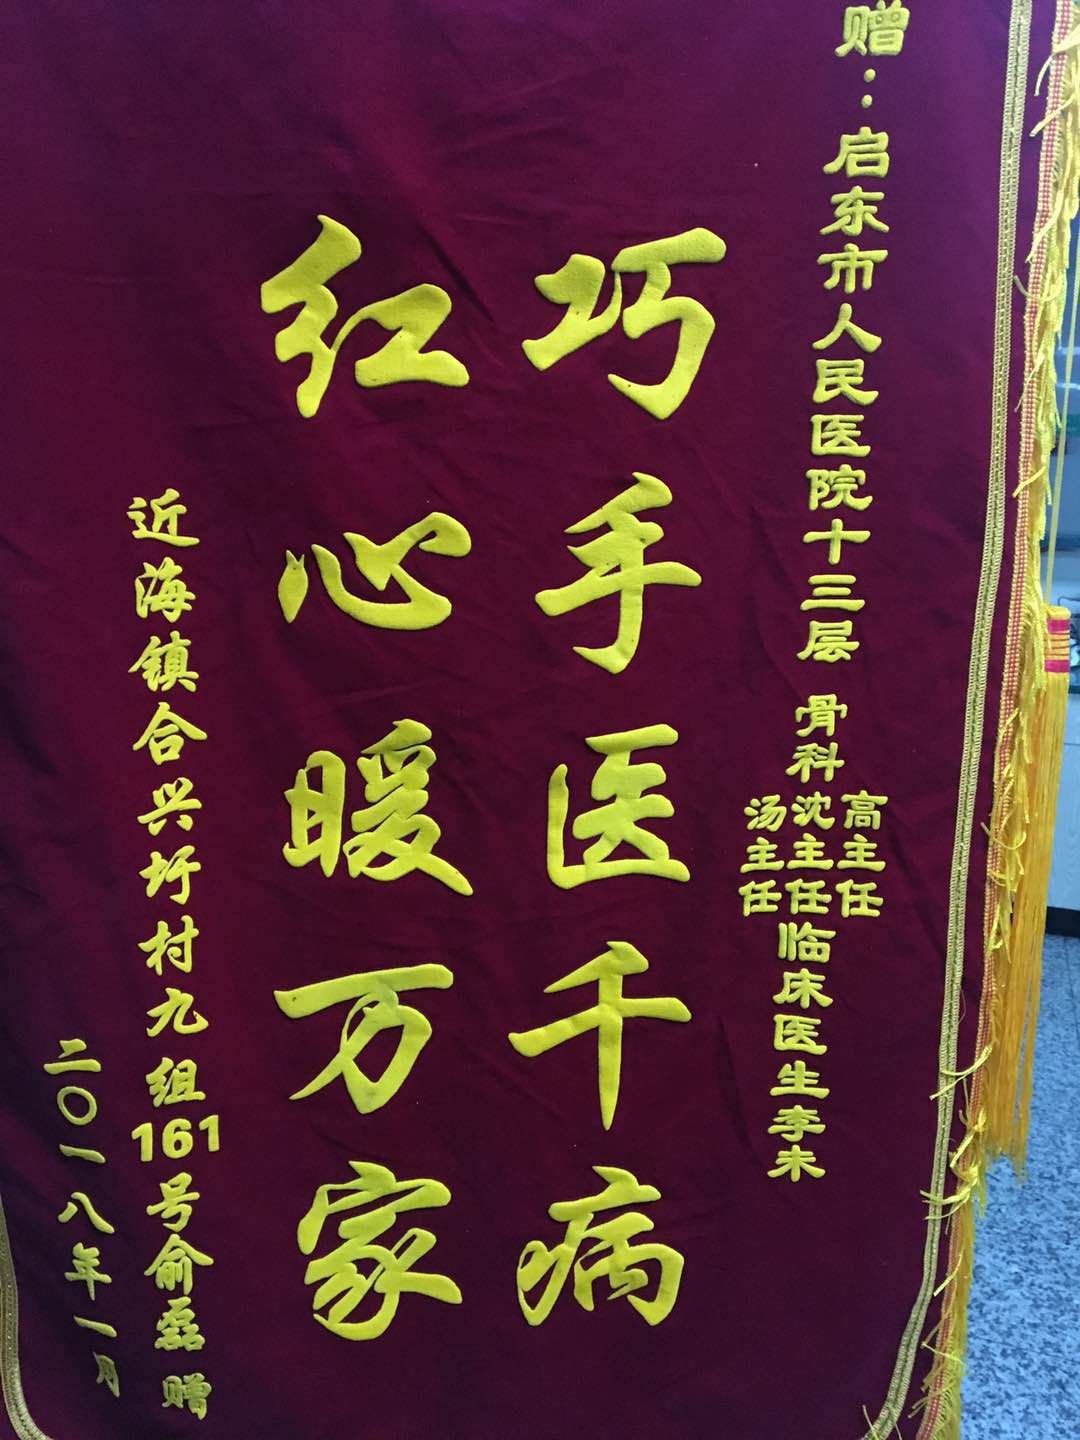 赠：启东市人民医院十三层 骨科
高主任
沈主任
汤主任
临床医生李未
巧手医千病
红心暖万家
近海镇合兴圩村九组161号俞磊 赠
二〇一八年一月